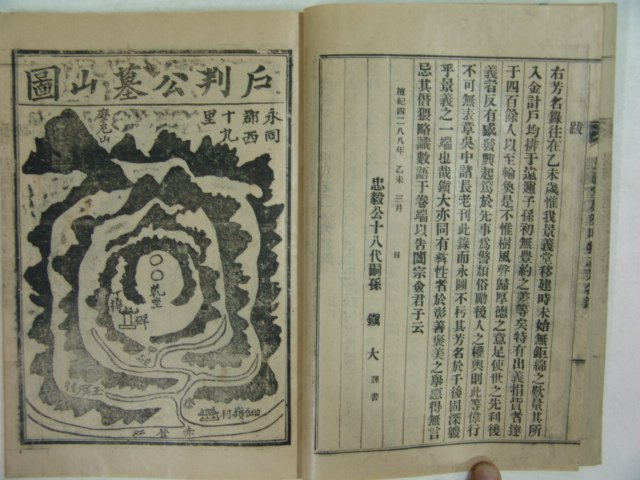 跋
右芳名錄往在乙未歲惟我景義堂移建時未始無鉅綿之歛量其所
入金計戶均排于遠邇子孫初無豊約之差等矣特有出義捐貲者達
于四百餘人以至輪奐是不惟樹風聲歸厚德之意足使世之先利後
義者反有感發興起篤於先事爲警頹俗勵後人之權輿則此等偉行
不可無表章吳中諸長老刊此錄而永圖不朽其芳名於千後固深韙
乎景義之一端也哉鎭大亦同有彝性者於彰善褒美之擧惡得無言
忌其僭猥略識數語于卷端以告閤宗僉君子云
檀紀四二八八年 乙未 三月 日
忠毅公十八代嗣孫 鎭大 謹書
戶判公墓山圖
永同
郡西
十九
里
乾坐
碑